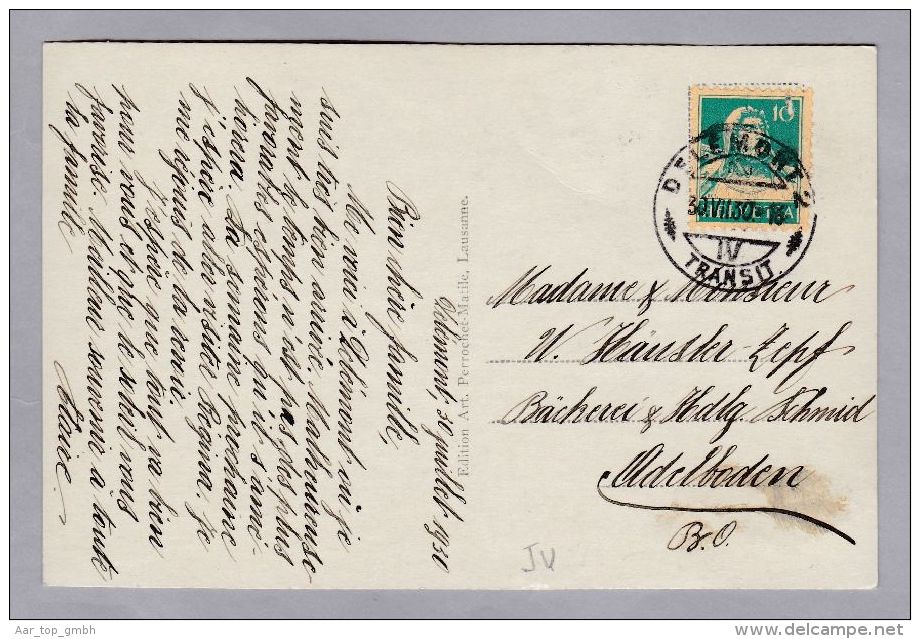 Delémont, 30 juillet 1930
Bien chère famille,
Me voici à Delémont où je
suis très bien arrivée. Malheureuse-
ment le temps n'est pas des plus
favorables espérons qu'il s'amé-
liorera. La semaine prochaine
j'espère aller visiter Regina je
me réjouis de la revoir.
J'espère que tout va bien
pour vous et que le soleil vous
favorise. Meilleurs souvenirs à toute
la famille
Claire.
Edition Art. Perrochet-Matile, Lausanne.
10
HELVETIA
DELEMONT 2
30.VII.30-18
IV
TRANSIT
Madame & Monsieur
W. Häusler-Zepf
Bäckerei & Hdlg. Schmid
Adelboden
B.O.
JV
Aar_top_gmbh
www.delcampe.net